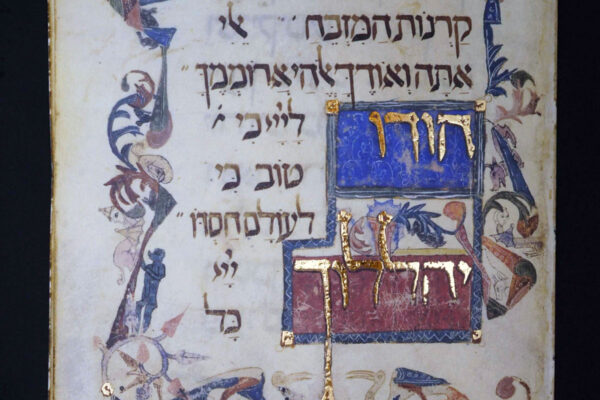 קרנות המזבח אלי
אתה ואודך אלהי ארוממך
הודו לייי כי
טוב כי
לעולם חסדו
יהללוך ייי
כל